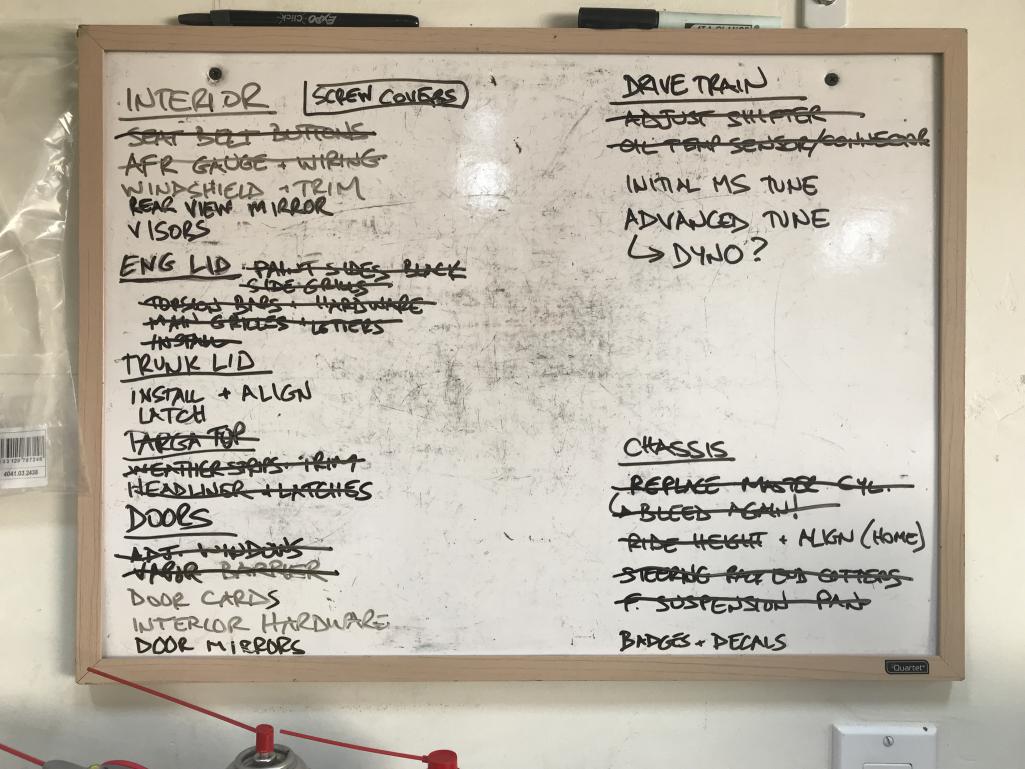 EXPO Click
INTERIOR
SCREW COVERS
SEAT BELT BUTTONS
AFR GAUGE + WIRING
WINDSHIELD + TRIM
REAR VIEW MIRROR
VISORS
ENG LID PAINT SIDES BLACK
SIDE GRILLS
TORSION BARS + HARDWARE
MAIN GRILLES + LETTERS
INSTALL
TRUNK LID
INSTALL + ALIGN
LATCH
TARGA TOP
WEATHER STRIPS + TRIM
HEADLINER + LATCHES
DOORS
ADJ. WINDOWS
VAPOR BARRIER
DOOR CARDS
INTERIOR HARDWARE
DOOR MIRRORS
DRIVE TRAIN
ADJUST SHIFTER
OIL TEMP SENSOR/CONNECTOR
INITIAL MS TUNE
ADVANCED TUNE
↳ DYNO?
CHASSIS
REPLACE MASTER CYL.
BLEED AGAIN!
RIDE HEIGHT + ALIGN (HOME)
STEERING RACK END COTTERS
F. SUSPENSION PAN
BADGES + DECALS
Quartet
4041.03.2438